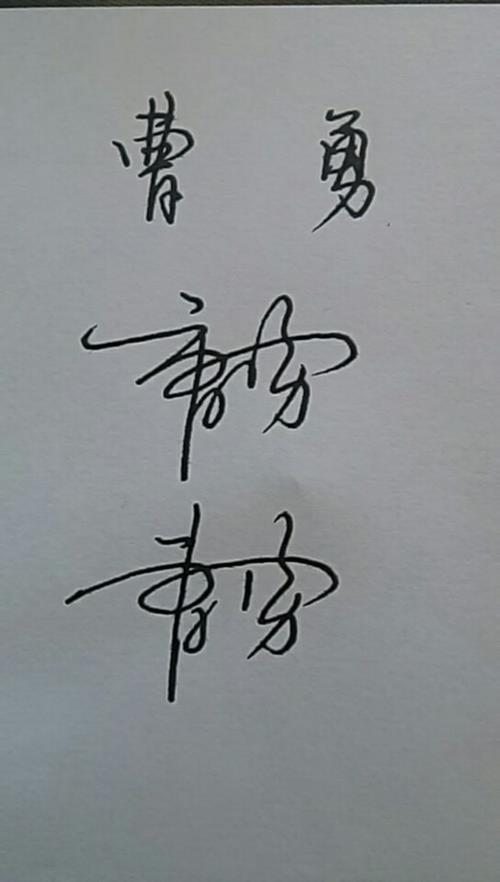 曹勇
曹勇
曹勇